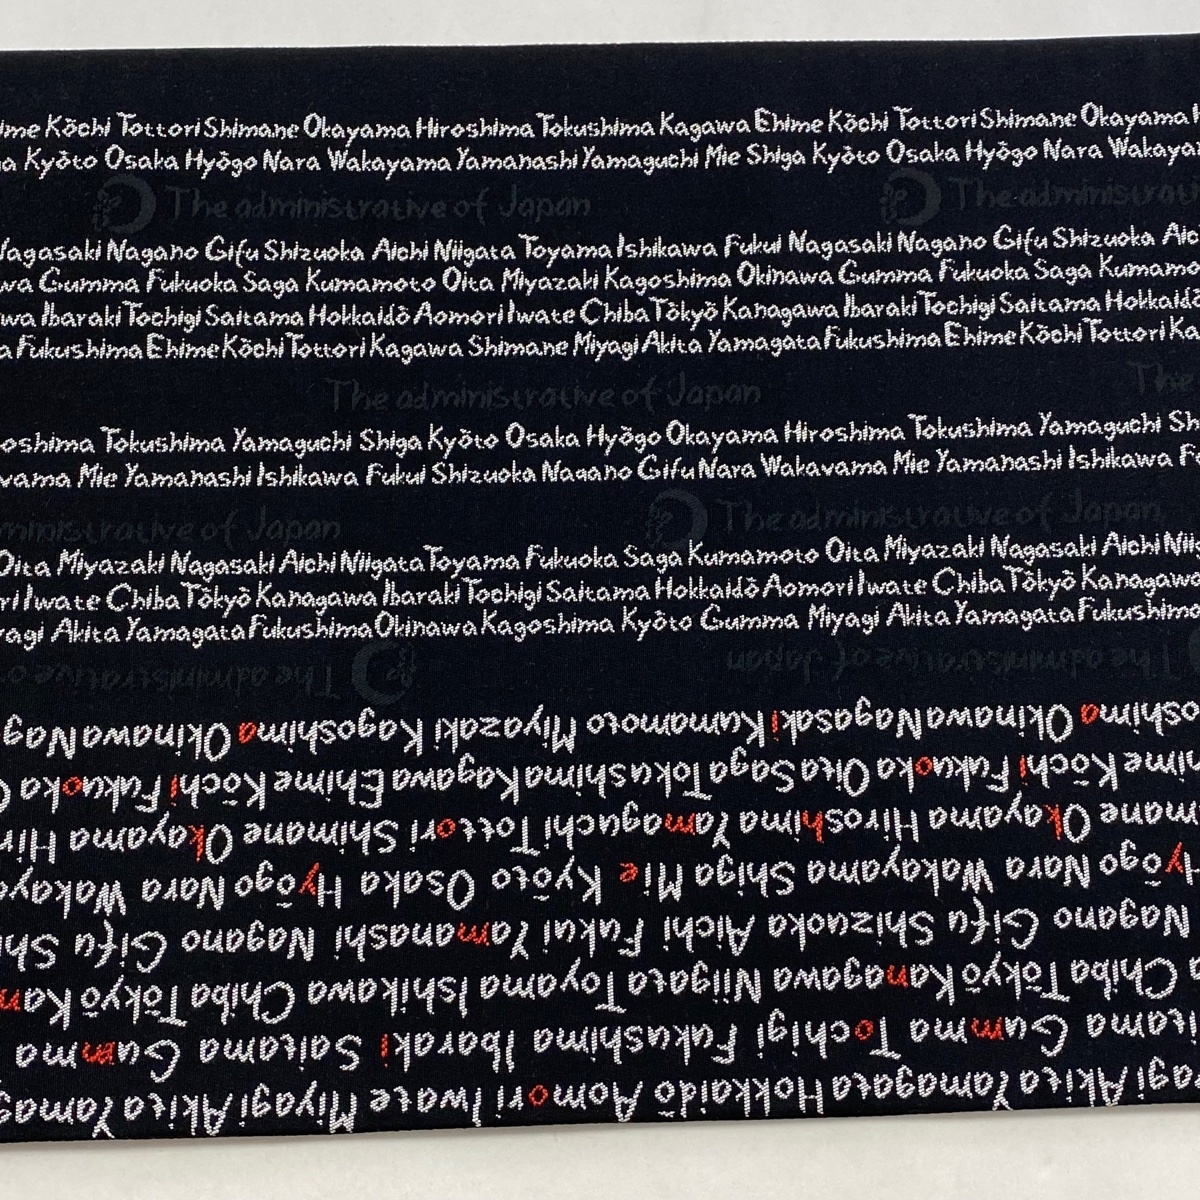 ime Kōchi Tottori Shimane Okayama Hiroshima Tokushima Kagawa Ehime Kōchi Tottori Shimane Okayama H
a Kyōto Osaka Hyōgo Nara Wakayama Yamanashi Yamaguchi Mie Shiga Kyōto Osaka Hyōgo Nara Wakayam
The administrative of Japan The administrat
Nagasaki Nagano Gifu Shizuoka Aichi Niigata Toyama Ishikawa Fukui Nagasaki Nagano Gifu Shizuoka Aic
wa Gumma Fukuoka Saga Kumamoto Oita Miyazaki Kagoshima Okinawa Gumma Fukuoka Saga Kumamo
wa Ibaraki Tochigi Saitama Hokkaidō Aomori Iwate Chiba Tōkyō Kanagawa Ibaraki Tochigi Saitama Hokkaidō
a Fukushima Ehime Kōchi Tottori Kagawa Shimane Miyagi Akita Yamagata Fukushima Ehime Kōchi Tottori Ka
The administrative of Japan The
oshima Tokushima Yamaguchi Shiga Kyōto Osaka Hyōgo Okayama Hiroshima Tokushima Yamaguchi Sh
yama Mie Yamanashi Ishikawa Fukui Shizuoka Nagano Gifu Nara Wakayama Mie Yamanashi Ishikawa F
ministrative of Japan The administrative of Japan
Oita Miyazaki Nagasaki Aichi Niigata Toyama Fukuoka Saga Kumamoto Oita Miyazaki Nagasaki Aichi Niig
ri Iwate Chiba Tōkyō Kanagawa Ibaraki Tochigi Saitama Hokkaidō Aomori Iwate Chiba Tōkyō Kanagawa
yagi Akita Yamagata Fukushima Okinawa Kagoshima Kyōto Gumma Miyagi Akita Yamagata Fukushima
The administrative of Japan The administrative o
oshima Okinawa Nagasaki Kumamoto Miyazaki Kagoshima Okinawa Nag
hime Kōchi Fukuoka Oita Saga Tokushima Kagawa Ehime Kōchi Fukuoka O
mane Okayama Hiroshima Yamaguchi Tottori Shimane Okayama Hir
Hyōgo Nara Wakayama Shiga Mie Kyōto Osaka Hyōgo Nara Wakaya
Nagano Gifu Shizuoka Aichi Fukui Yamanashi Nagano Gifu Shi
a Chiba Tōkyō Kanagawa Niigata Toyama Ishikawa Chiba Tōkyō Kan
itama Gumma Tochigi Fukushima Ibaraki Saitama Gumma
yagi Akita Yamagata Hokkaidō Aomori Iwate Miyagi Akita Yamag